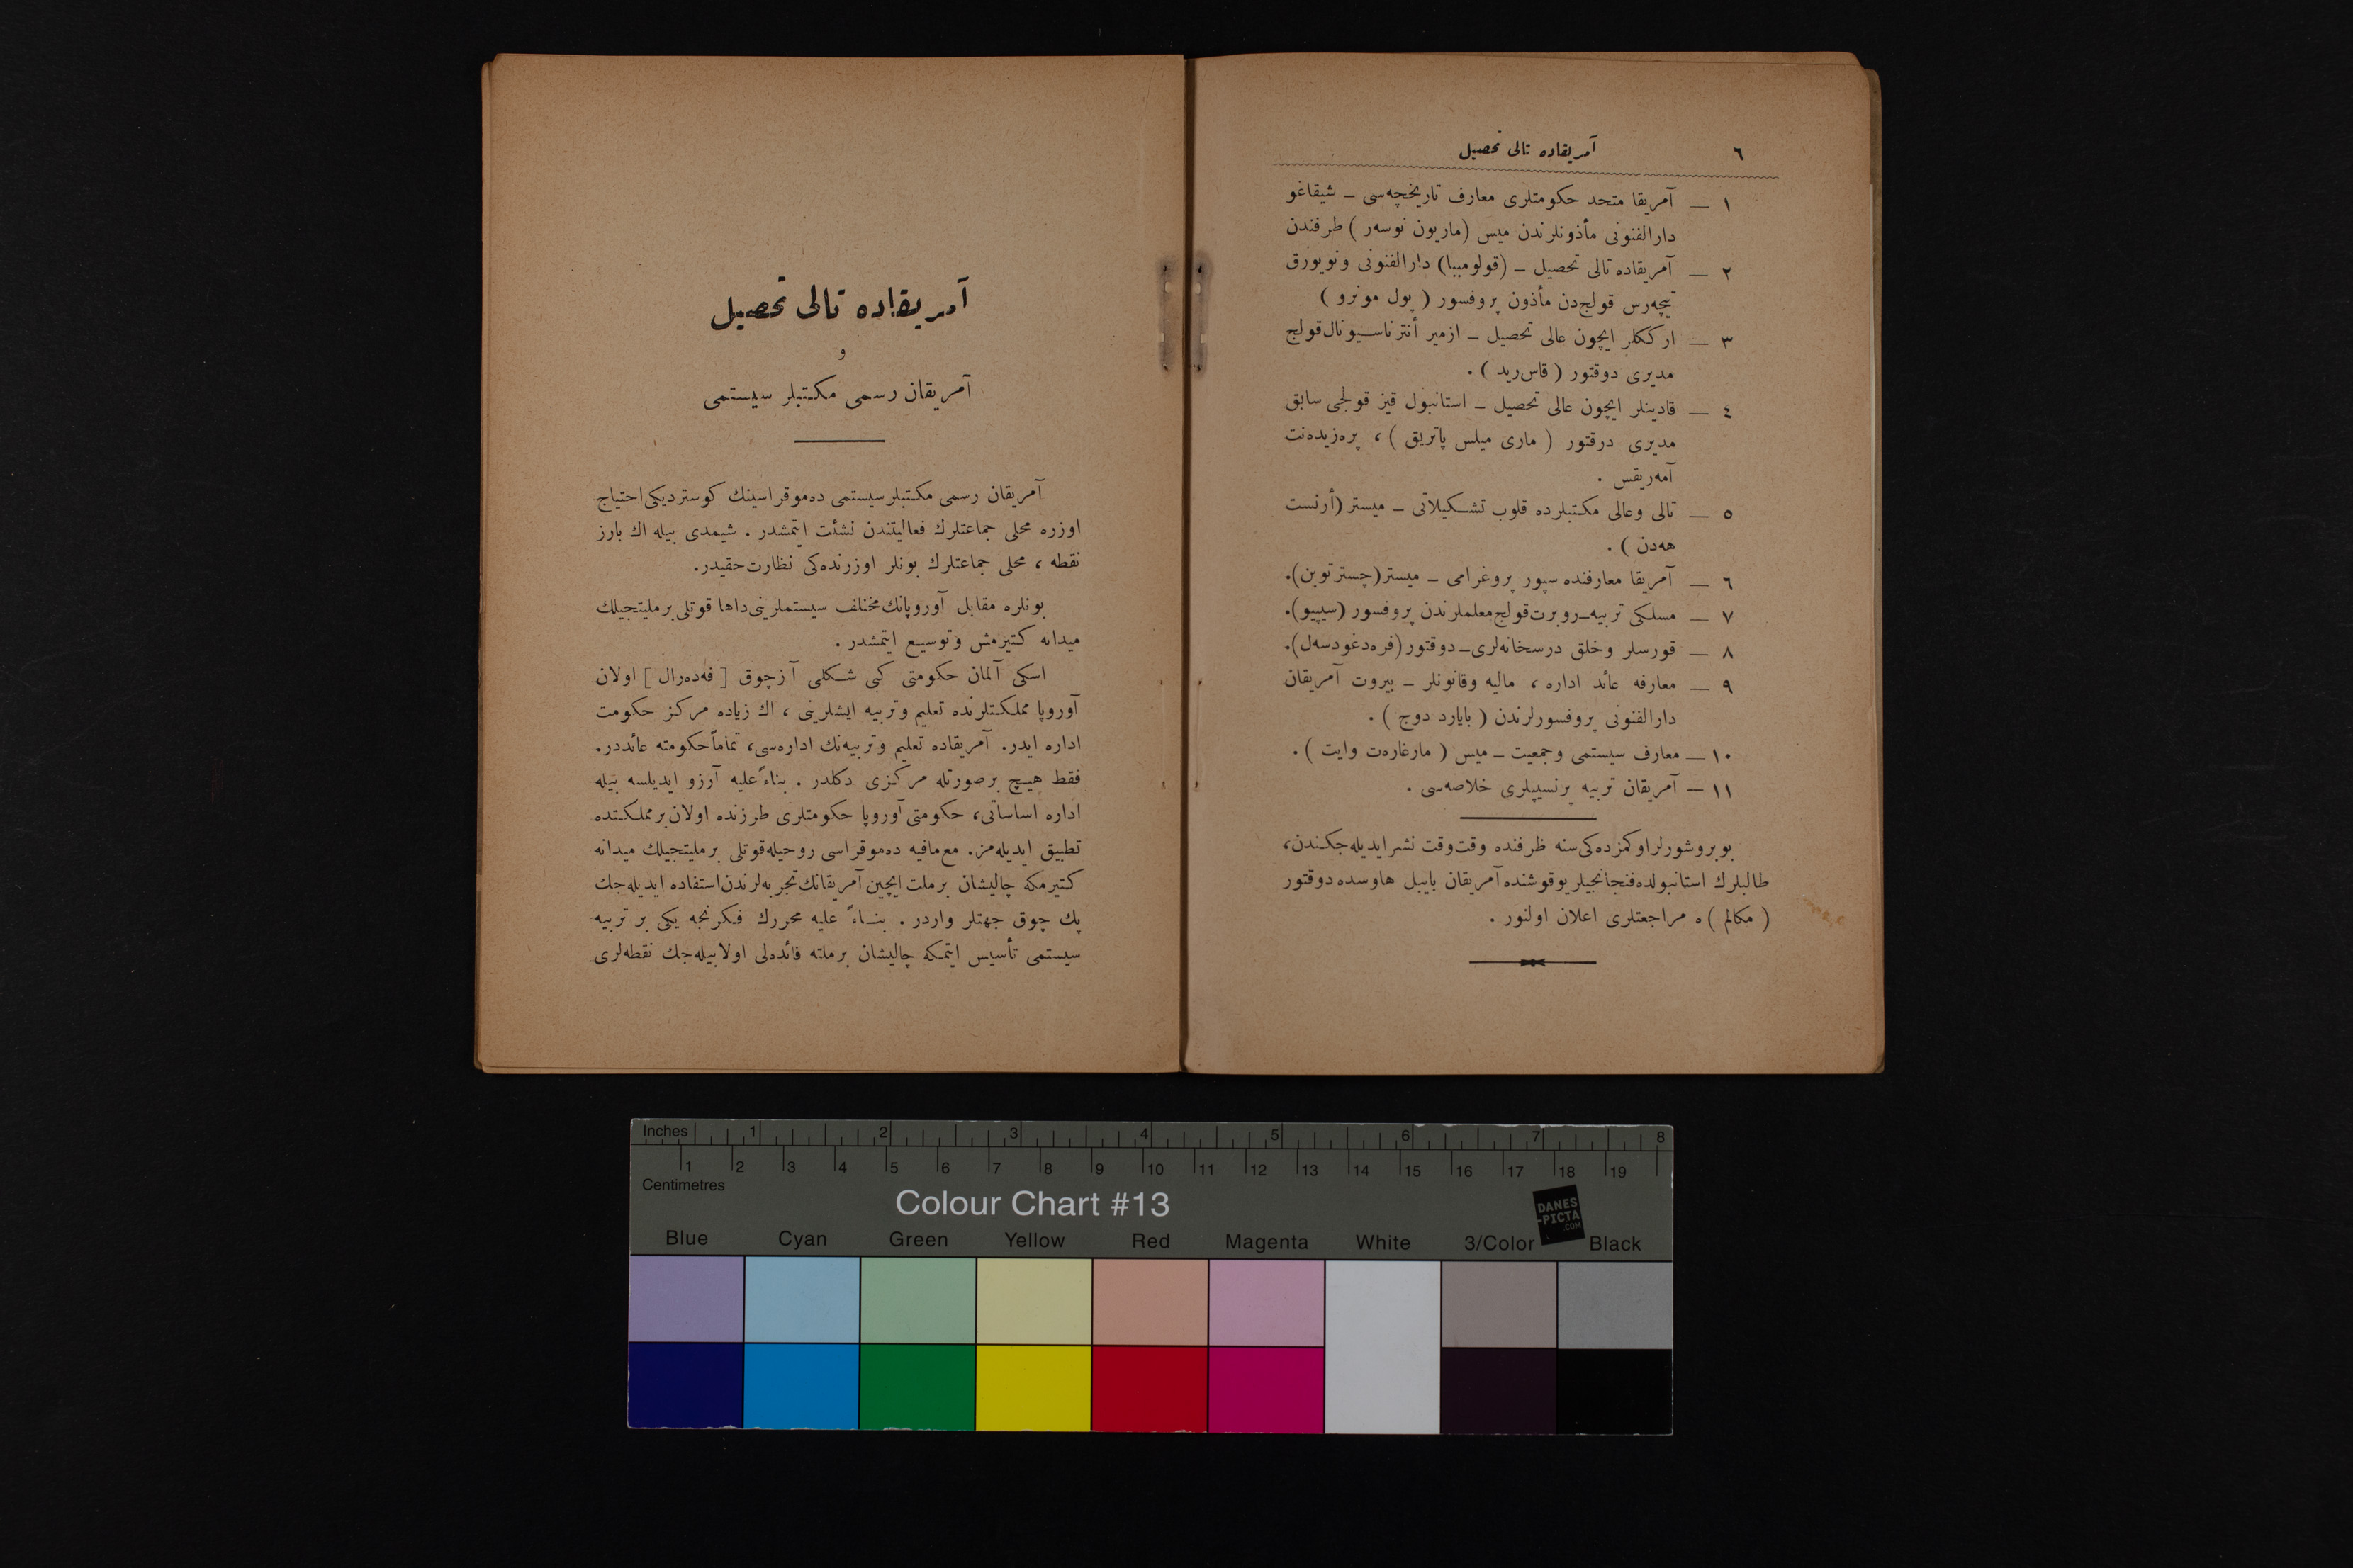 ٦ آمریقاده تالی تحصیل
١ — آمریقا متحد حکومتلری معارف تاریخچه‌سی – شیقاغو
دارالفنونی مأذونلرندن میس (ماریون نوسه‌ر) طرفندن
٢ — آمریقاده تالی تحصیل – (قولومبیا) دارالفنونی ونویورق
تیچه‌رس قولج‌دن مأذون پروفسور ( پول مونرو )
٣ — ارککلر ایچون عالی تحصیل – ازمیر أنترناسیونال قولج
مدیری دوقتور ( قاس رید ) .
٤ — قادینلر ایچون عالی تحصیل – استانبول قیز قولجی سابق
مدیری درقتور ( ماری میلس پاتریق ) ، پره‌زیده‌نت
آمه‌ریقس .
٥ — تالی وعالی مکتبلرده قلوب تشکیلاتی – میستر (أرنست
هه‌دن ) .
٦ — آمریقا معارفنده سپور پروغرامی – میستر (چستر توین).
٧ — مسلکی تربیه – روبرت قولج معلملرندن پروفسور (سیپیو).
٨ — قورسلر وخلق درسخانه‌لری – دوقتور (فره‌دغودسه‌ل).
٩ — معارفه عائد اداره ، مالیه وقانونلر – بیروت آمریقان
دارالفنونی پروفسورلرندن ( بایارد دوج ) .
١٠ — معارف سیستمی وجمعیت – میس ( مارغاره‌ت وایت ) .
١١ — آمریقان تربیه پرنسیپلری خلاصه‌سی .
بوبروشورلر اوکمزده‌کی سنه ظرفنده وقت وقت نشر ایدیله‌جکندن،
طالبلرك استانبولده فنجانجیلر یوقوشنده آمریقان بایبل هاوسده دوقتور
( مکالم ) ه مراجعتلری اعلان اولنور .
آمریقاده تالی تحصیل
و
آمریقان رسمی مکتبلر سیستمی
آمریقان رسمی مکتبلر سیستمی ده‌موقراسینك کوستردیکی احتیاج
اوزره محلی جماعتلرك فعالیتندن نشئت ایتمشدر . شیمدی بیله اك بارز
نقطه ، محلی جماعتلرك بونلر اوزرنده‌کی نظارت حقیدر.
بونلره مقابل آوروپانك مختلف سیستملرینی داها قوتلی برملیتجیلك
میدانه کتیرمش وتوسیع ایتمشدر .
اسکی آلمان حکومتی کبی شکلی آز چوق [ فه‌ده‌رال ] اولان
آوروپا مملکتلرنده تعلیم وتربیه ایشلرینی ، اك زیاده مرکز حکومت
اداره ایدر. آمریقاده تعلیم وتربیه‌نك اداره‌سی، تماماً حکومته عائددر.
فقط هیچ برصورتله مرکزی دکلدر . بناءً علیه آرزو ایدیلسه بیله
اداره اساساتی، حکومتی آوروپا حکومتلری طرزنده اولان برمملکتده
تطبیق ایدیله‌مز. مع‌مافیه ده‌موقراسی روحیله قوتلی برملیتجیلك میدانه
کتیرمکه چالیشان برملت ایچین آمریقانك تجربه‌لرندن استفاده ایدیله‌جك
پك چوق جهتلر واردر . بناءً علیه محررك فکرنجه یکی بر تربیه
سیستمی تأسیس ایتمکه چالیشان برملته فائده‌لی اولابیله‌جك نقطه‌لری
Inches 1 2 3 4 5 6 7 8
1 2 3 4 5 6 7 8 9 10 11 12 13 14 15 16 17 18 19
Centimetres
Colour Chart #13
DANES
-PICTA
.COM
Blue Cyan Green Yellow Red Magenta White 3/Color Black